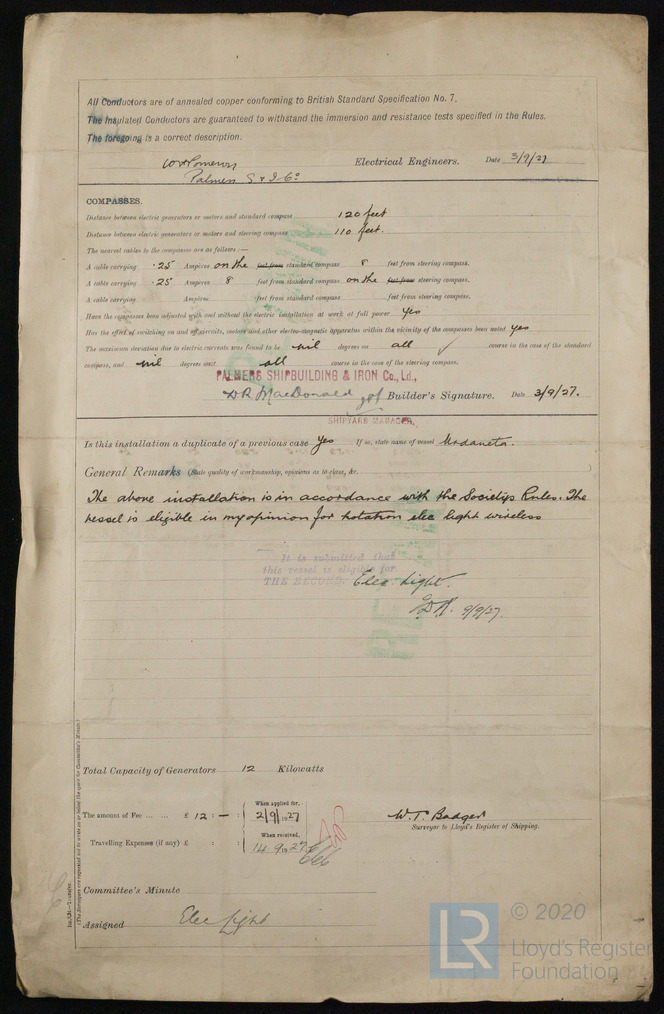 All Conductors are of annealed copper conforming to British Standard Specification No. 7.
The Insulated Conductors are guaranteed to withstand the immersion and resistance tests specified in the Rules.
The foregoing is a correct description.
Palmers S & I Co Electrical Engineers. Date 3/9/27
COMPASSES.
Distance between electric generators or motors and standard compass 120 feet
Distance between electric generators or motors and steering compass 110 feet.
The nearest cables to the compasses are as follows:—
A cable carrying .25 Ampères on the feet from standard compass 8 feet from steering compass.
A cable carrying .25 Ampères 8 feet from standard compass on the feet from steering compass.
A cable carrying Ampères feet from standard compass feet from steering compass.
Have the compasses been adjusted with and without the electric installation at work at full power yes
Has the effect of switching on and off circuits, motors and other electro-magnetic apparatus within the vicinity of the compasses been noted yes
The maximum deviation due to electric currents was found to be nil degrees on all course in the case of the standard
compass, and nil degrees on all course in the case of the steering compass.
PALMERS SHIPBUILDING & IRON Co., Ld.,
D R MacDonald Builder's Signature. Date 3/9/27.
SHIPYARD MANAGER.
Is this installation a duplicate of a previous case yes If so, state name of vessel
General Remarks (State quality of workmanship, opinions as to class, &c. )
The above installation is in accordance with the Societys Rules. The
vessel is eligible in my opinion for notation elec light wireless
It is submitted that
this vessel is eligible for
THE RECORD. Elec. Light.
9/9/27.
Total Capacity of Generators 12 Kilowatts
The amount of Fee ... ... £ 12 : — :
When applied for,
2/9/1927
Travelling Expenses (if any) £ : :
When received,
14.9.1927
W. T. Badger
Surveyor to Lloyd's Register of Shipping.
Committee's Minute
Assigned Elec Light
(The Surveyors are requested not to write on or below the space for Committee's Minute.)
LR
© 2020
Lloyd's Register
Foundation